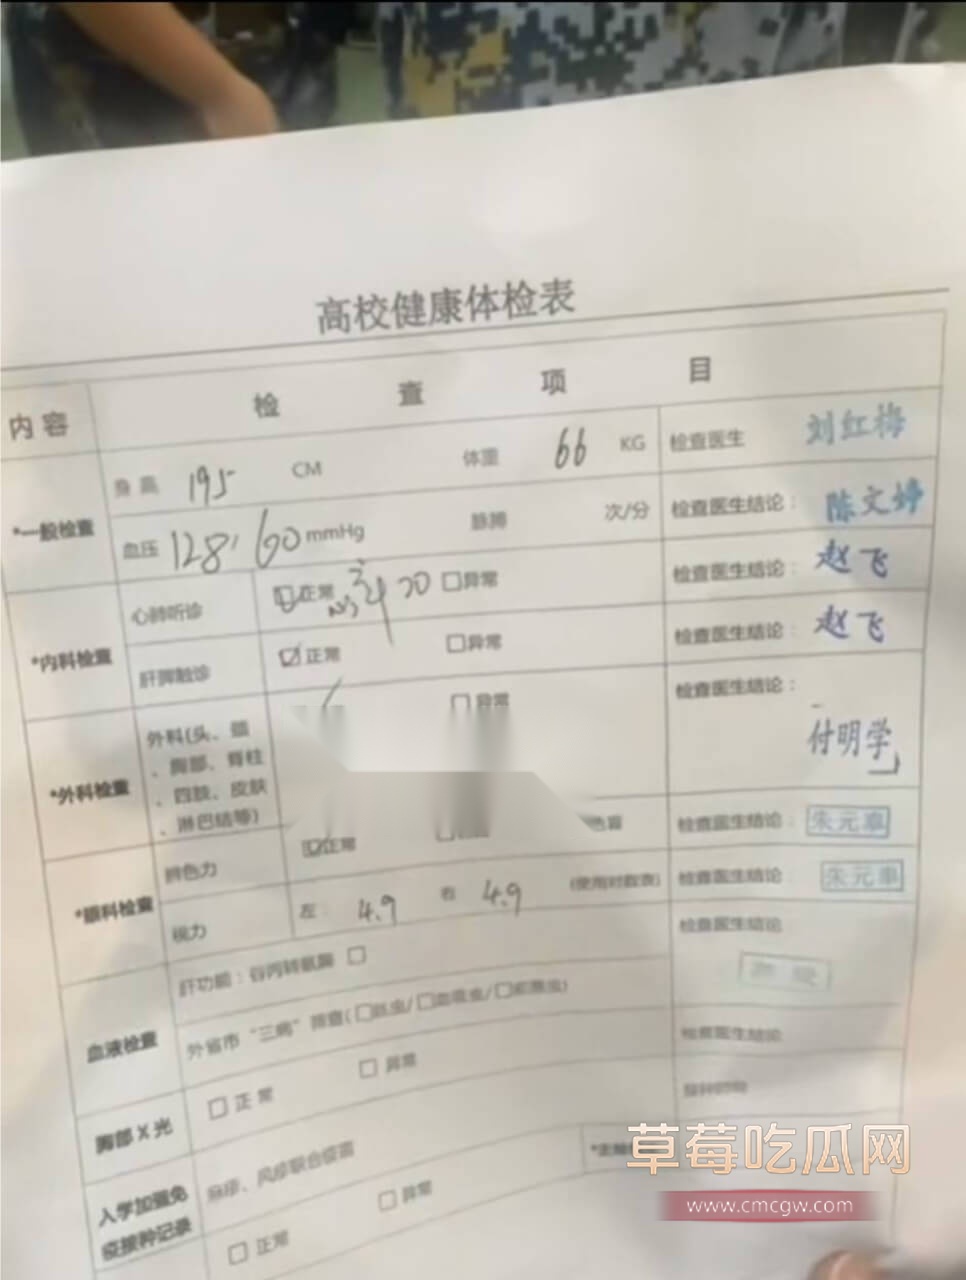 高校健康体检表
内容 检查项目
*一般检查 身高 195 CM 体重 66 KG 检查医生 刘红梅
血压 128/60 mmHg 脉搏 次/分 检查医生结论： 陈文婷
*内科检查 心肺听诊 正常 异常 检查医生结论： 赵飞
肝脾触诊 正常 异常 检查医生结论： 赵飞
*外科检查 外科(头、颈、胸部、脊柱、四肢、皮肤、淋巴结等) 异常 检查医生结论： 付明学
*眼科检查 辨色力 正常 色盲 检查医生结论： 朱元
视力 左： 4.9 右 4.9 (使用对数表) 检查医生结论： 朱元
血液检查 肝功能：谷丙转氨酶 检查医生结论
外省市“三病”筛查(丝虫/血吸虫/
胸部X光 正常 异常 检查医生结论
入学加强免疫接种记录 麻疹、风疹联合疫苗
正常 异常
草莓吃瓜网
www.cmcgw.com